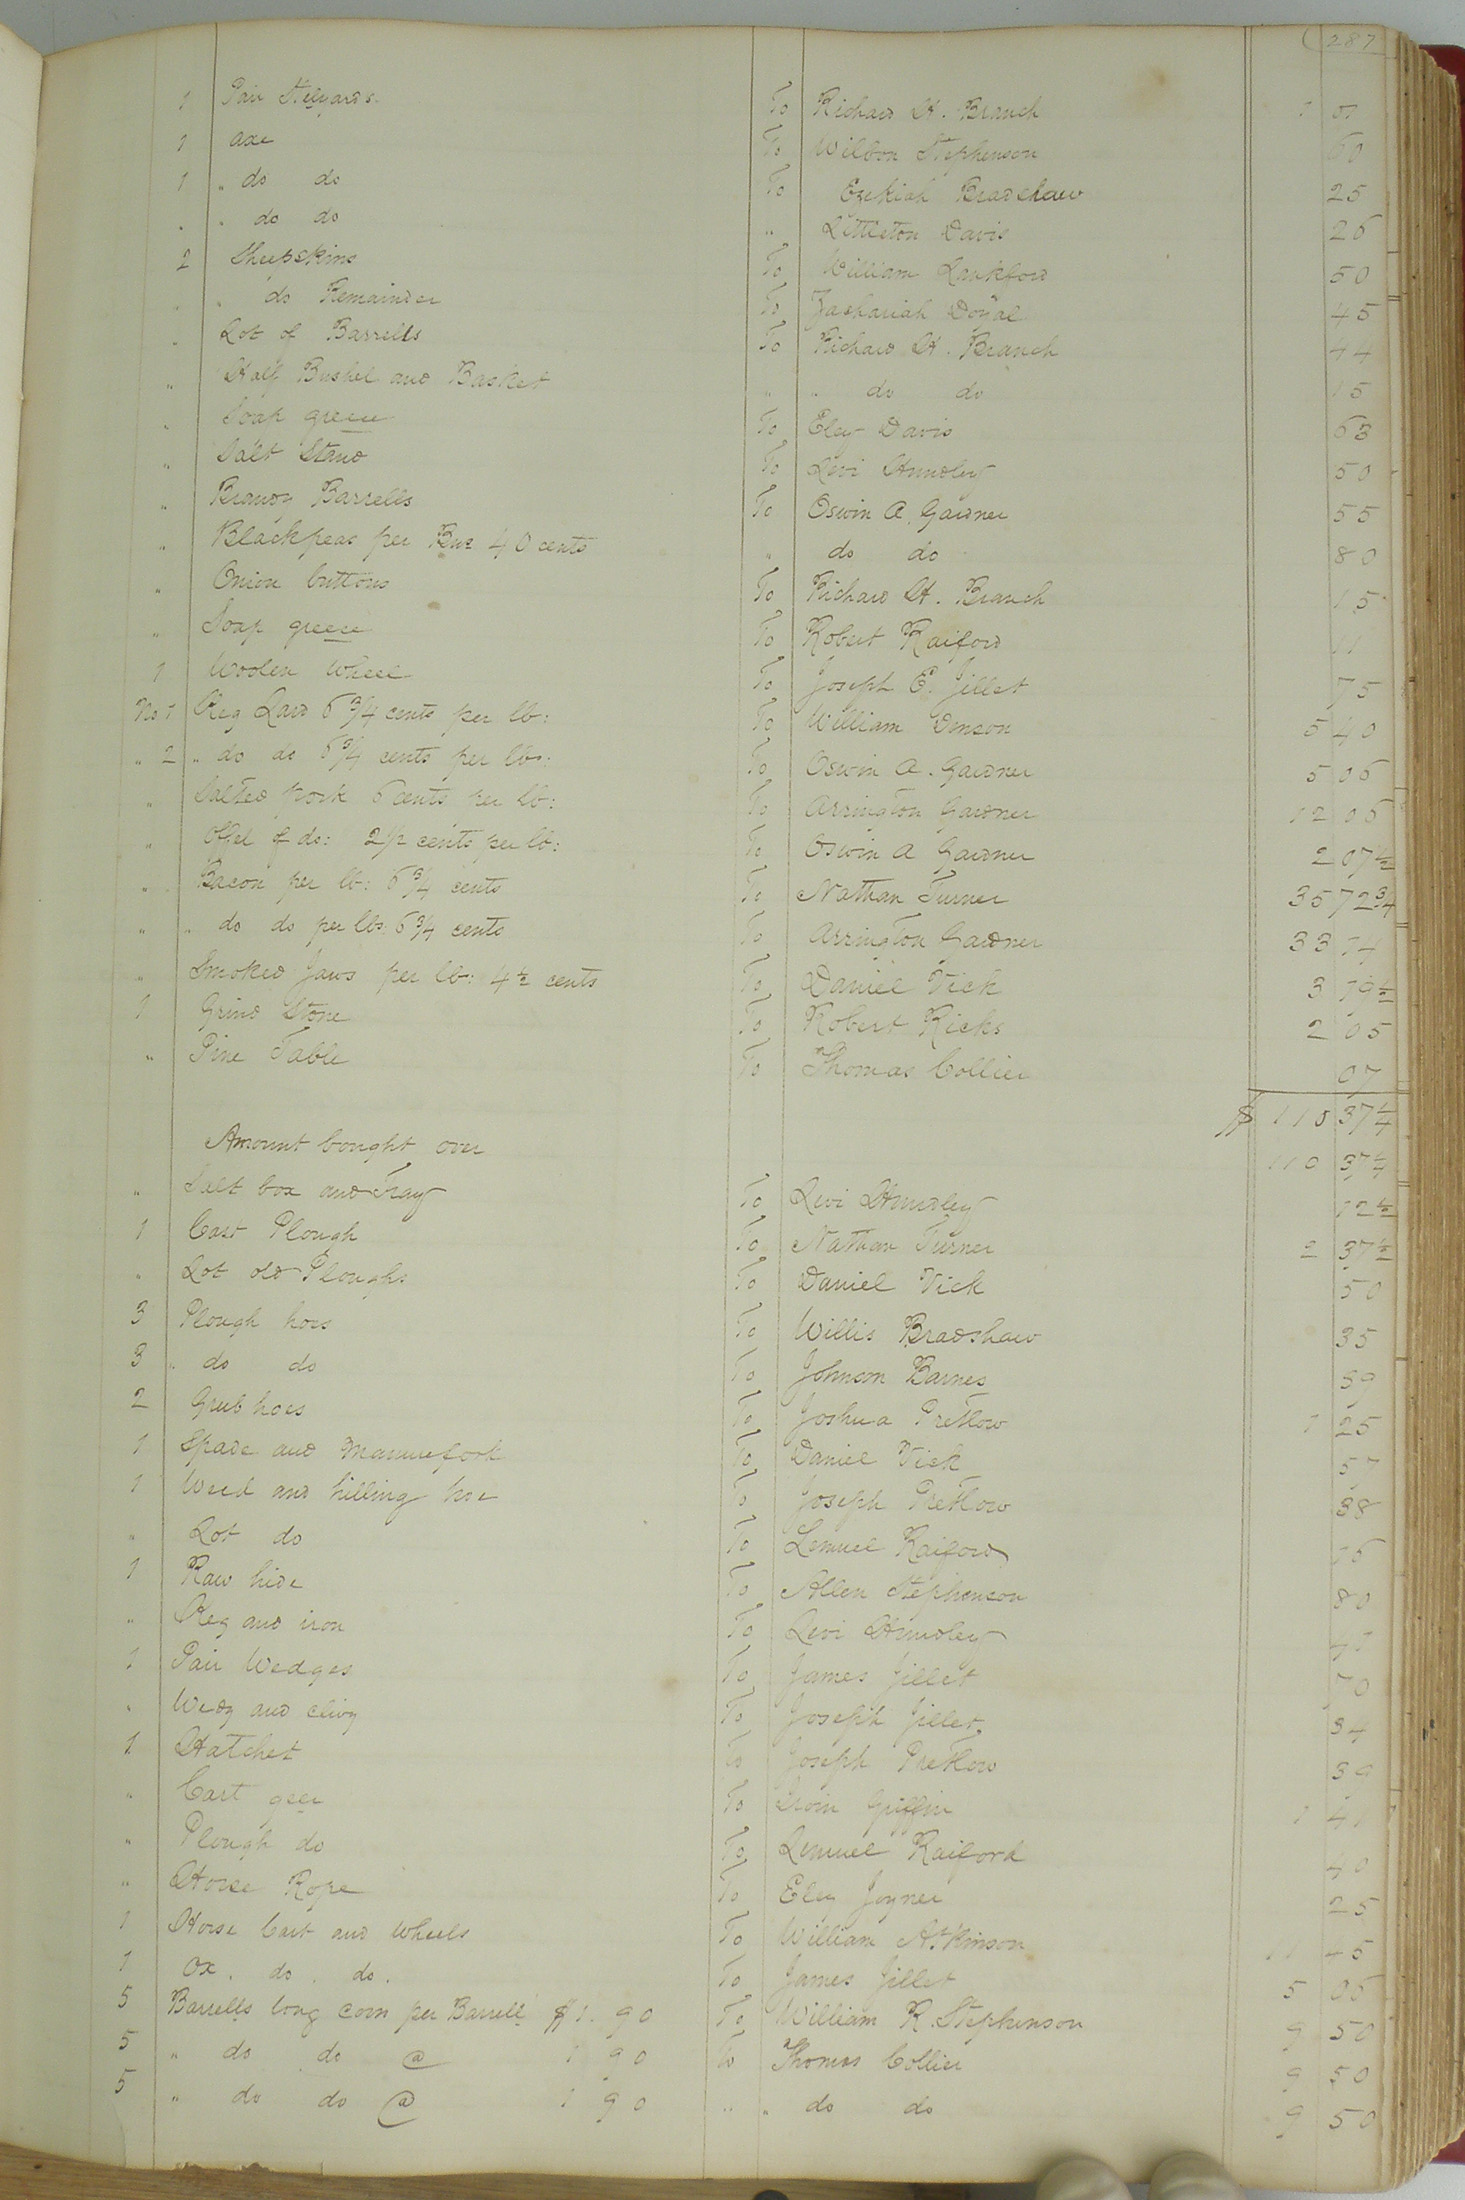 (287
1 Pair Stelyards. To Richard H. Branch 1 01
1 axe To Wilson Stephenson 60
1 " do do To Ezekiah Bradshaw 25
" " do do " Littleton Davis 26
2 Sheepskins To William Lankford 50
" " do Remainder To Zachariah Doyal 45
" Lot of Barrells To Richard H. Branch 44
" Half Bushel and Basket " " do do 15
" Soap greece To Eley Davis 63
" Salt Stand To Levi Hundley 50
" Brandy Barrells To Oswin A. Gardner 55
" Blackpeas per Bus 40 cents " do do 80
" Onion buttons To Richard H. Branch 15
" Soap greece To Robert Raiford 11
1 Woolen Wheel To Joseph E. Jillet 75
No 1 Keg Lard 6 3/4 cents per lb: To William Denson 5 40
" 2 " do do 6 3/4 cents per lbs: To Oswin A. Gardner 5 06
" Salted pork 6 cents per lb: To Arrington Gardner 12 06
" Offel of do: 2 1/2 cents per lb: To Oswin A Gardner 2 07 1/2
" Bacon per lb: 6 3/4 cents To Nathan Turner 35 72 3/4
" " do do per lbs 6 3/4 cents To Arrington Gardner 33 14
" Smoked Jaws per lb: 4 1/2 cents To Daniel Vick 3 19 1/2
1 Grind Stone To Robert Ricks 2 05
" Pine Table To Thomas Collier 07
$ 110 37 1/4
Amount bought over 110 37 1/4
" Salt box and Tray To Levi Hundley 12 1/2
1 Cast Plough To Nathan Turner 2 37 1/2
" Lot old Ploughs To Daniel Vick 50
3 Plough hoes To Willis Bradshaw 35
3 " do do To Johnson Barnes 39
2 Grub hoes To Joshua Pretlow 1 25
1 Spade and manurefork To Daniel Vick 57
1 Weed and hilling hoe To Joseph Pretlow 38
" Lot do To Lemuel Raiford 16
1 Raw hide To Allen Stephenson 80
" Keg and iron To Levi Hundley 71
1 Pair Wedges To James Jillet 70
" Wedg and clivy To Joseph Jillet. 34
1 Hatchet To Joseph Pretlow 39
" Cart geer To Irvin Griffin 1 41
" Plough do To Lemuel Raiford 40
" Horse Rope To Eley Joyner 25
1 Horse Cart and Wheels To William Atkinson 11 5
1 Ox. do. do. To James Jillet 5 05
5 Barrells long corn per Barrell $1.90 To William R. Stephenson 9 50
5 " do do @ 1 90 To Thomas Collier 9 50
5 " do do @ 1 90 " " do do 9 50